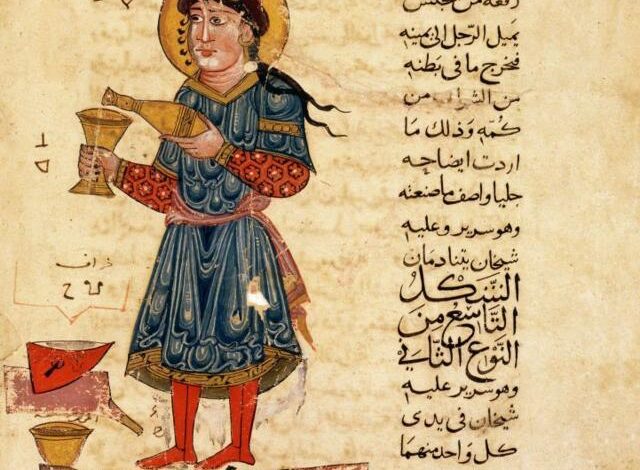 يميل الرجل الى يمينه
فيخرج ما فى بطنه
من الشراب من
كمّه وذلك ما
اردت ايضاحه
جليا واصف ما صنعته
وهو سرير وعليه
شيخان يتنادمان
الشكل
التاسع من
النوع الثاني
وهو سرير عليه
شيخان فى يدى
كل واحد منهما